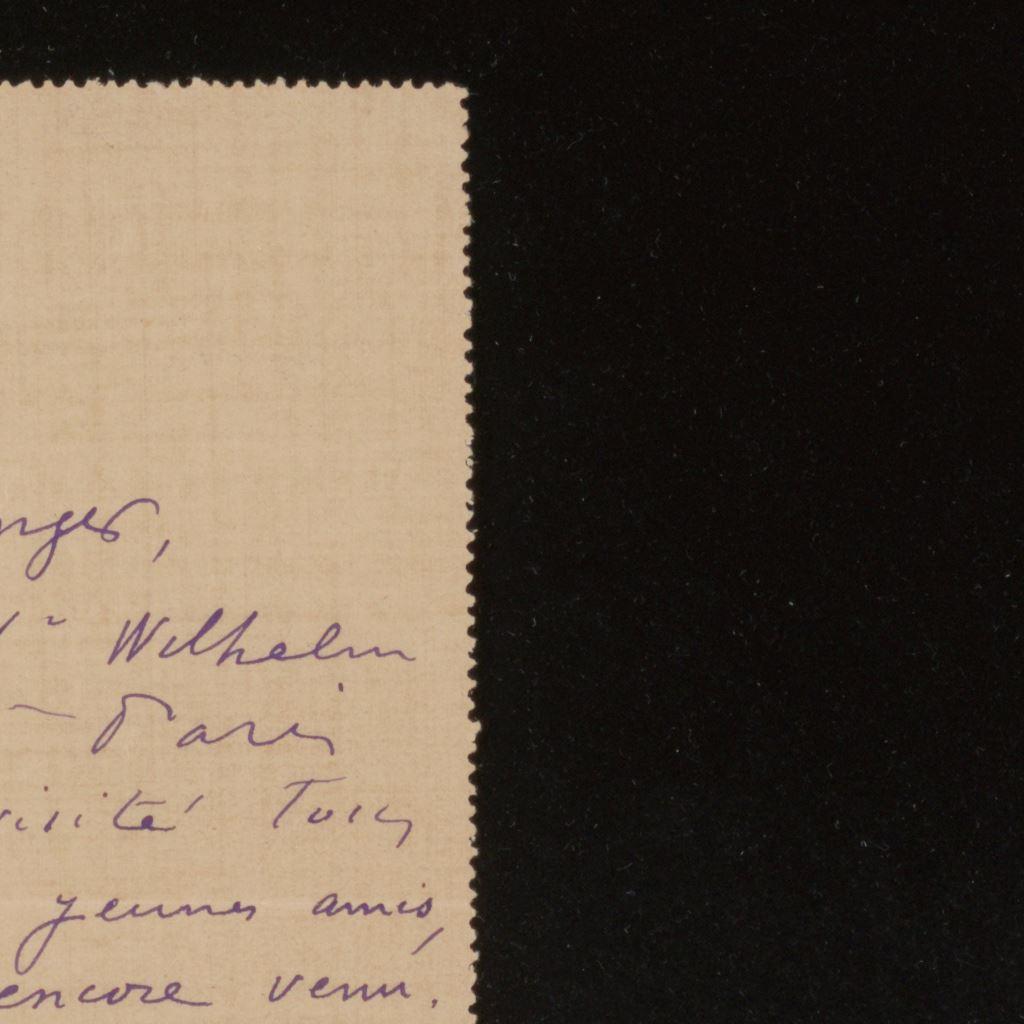 nges,
Wilhelm
— Paris
visité Tous
jeunes amis,
encore venu.